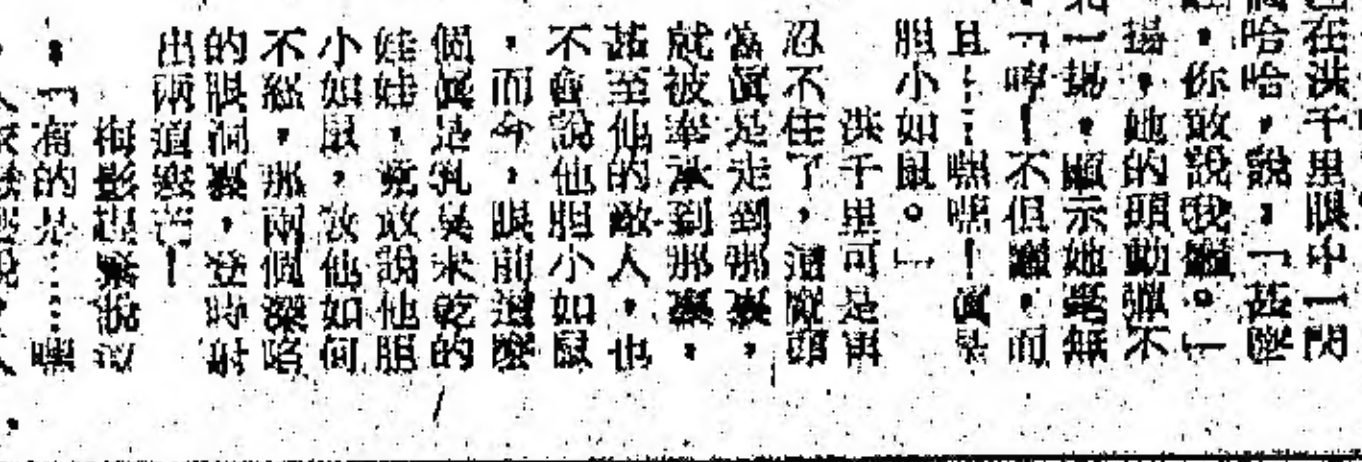 在洪千里眼中一閃
哈哈,說,「甚麼
,你敢說我
揚,她的頭動彈不
一揚,顯示她毫無
「哼!不但,而
且……嘿嘿!真是
胆小如鼠。」
洪千里可是再
忍不住了,這魔頭
當真是走到那裏,
就被奉承到那裏,
甚至他的敵人,也
不會說他胆小如鼠
,而今,眼前這麼
個真是乳臭未乾的
娃娃,竟敢說他胆
小如鼠,教他如何
不怒,那兩個深陷
的眼洞裏,登時射
出兩道綠芒!
梅影趕緊說
,「有的是……嘿